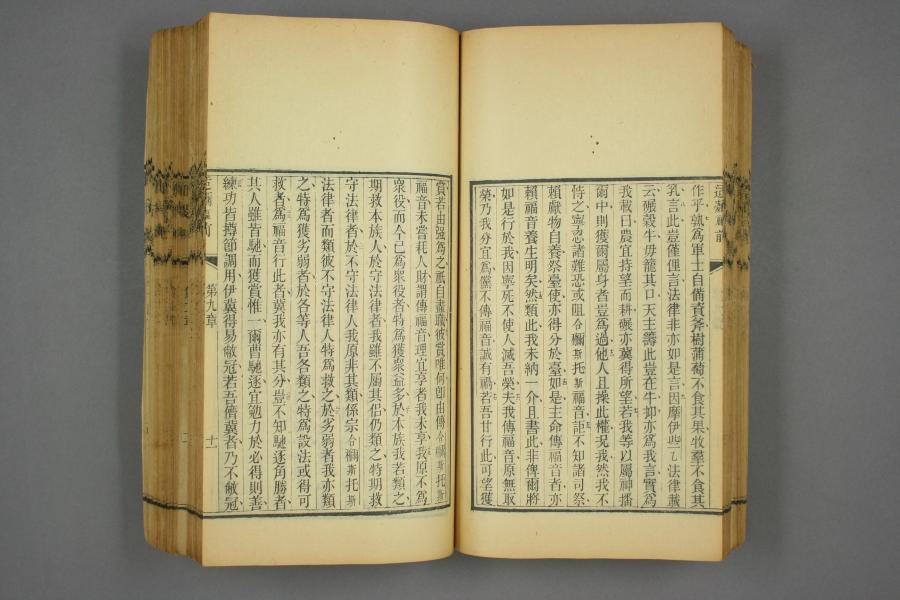 作乎孰為軍士自備資斧樹蒲萄不食其果牧羣不食其
乳言此豈僅俚言法律非亦如是言因摩伊些氏法律載
云碾穀牛毋籠其口天主籌此豈在牛抑亦為我言實為
我載曰農宜持望而耕碾亦冀得所望若我等以屬神播
爾中則獲爾屬身者豈為過他人且操此權况我然我不
恃之寧忍諸難恐或阻合穪斯托斯福音詎不知諸司祭
賴獻物自養祭臺使亦得分於臺如是主命傳福音者亦
賴福音養生明矣然類此我未納一介且書此非俾爾將
如是行於我因寧死不使人減吾榮夫我傳福音原無取
榮乃我分宜為黨不傳福音誠有禍若吾甘行此可望獲
賞若由强為之祇自盡職彼賞唯何卽由傳合穪斯托斯
福音未嘗耗人財謂傳福音理宜享者我未享我原不為
衆役而今已為衆役者特為獲衆益多於本族我若類之
期救本族人於守法律者我雖不屬其侣仍類之特期救
守法律者於不守法律人我原非其類係宗合穪斯托斯
法律者而類彼不守法律人特為救之於劣弱者我亦類
之特為獲劣弱者於各等人吾各類之特為設法或得可
救者為福音行此者冀我亦有其分豈不知馳逐角勝者
其人雖皆馳而獲賞惟一爾曹馳逐宜勉力於必得則善
練功皆撙節調用伊冀得易敝冠若吾儕冀者乃不敝冠
第九章
十一